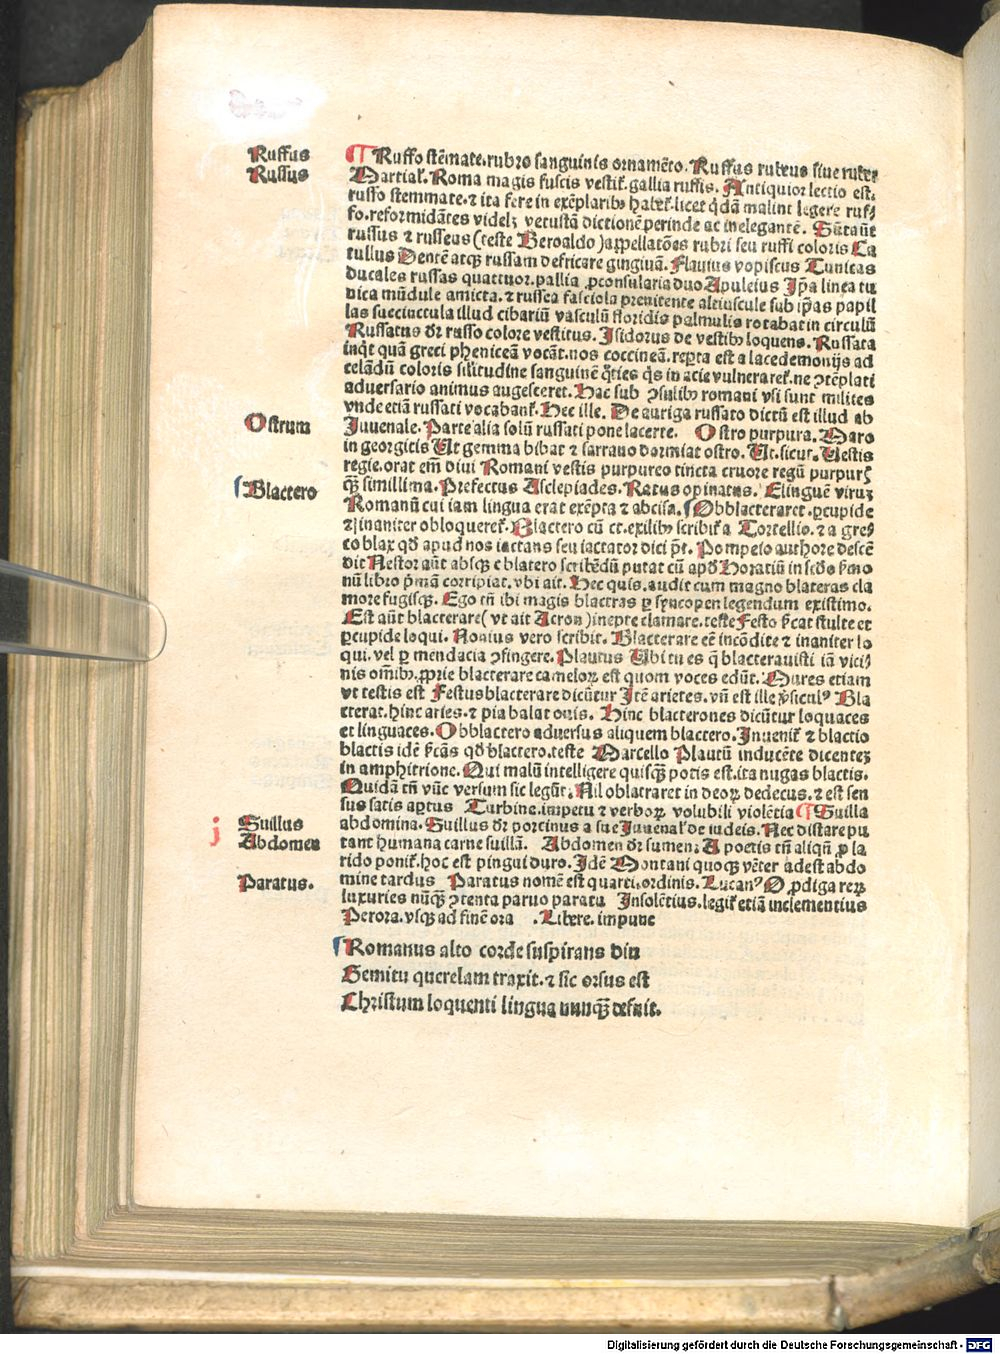 Ruffus
Russus
Ruffo stēmate.rubro sanguinis ornamēto.Ruffus rubeus siue ruber
Martial.Roma magis fuscis vestit̄.gallia ruffis.Antiquior lectio est.
russo stemmate.⁊ ita fere in exēplarib⁹ habet̄.licet q̄dā malint legere ruf⸗
fo.reformidātes videlꝫ vetustā dictionē perinde ac inelegantē. Sūt aūt
russus ⁊ russeus(teste Beroaldo)appellatōes rubri seu ruffi coloris Ca
tullus Dentē atqꝫ russam defricare gingiuā.Flauius vopiscus Tunicas
ducales russas quattuor.pallia ꝓconsularia duo Apuleius Ip̄a linea tu
nica mūdule amicta.⁊ russea fasciola prenitente altiuscule sub ip̄as papil
las succinctula illud cibariū vasculū floridis palmulis rotabat in circulū
Russatus dr̄ russo colore vestitus.Isidorus de vestib⁹ loquens.Russata
inq̄t quā greci pheniceā vocāt.nos coccineā.rep̄ta est a lacedemonijs ad
celādū coloris silitudine sanguinē q̄ties q̄s in acie vulneraret̄.ne ꝯtēplati
aduersario animus augesceret.Hac sub ꝯsulib⁹ romani vsi sunt milites
vnde etiā russati vocabant̄.Hec ille. De auriga russato dictū est illud ab
Ostrum
Juuenale.Parte alia solū russati pone lacerte. Ostro purpura.Maro
in georgicis Ut gemma bibat ⁊ sarrano dormiat ostro.Ut.sicut.Uestis
regie.orat em̄ diui Romani vestis purpureo tincta cruore regū purpurꝫ
Blactero
qꝫ simillima.Prefectus Asclepiades.Ratus opinatus. Elinguē virum
Romanū cui iam lingua erat exēpta ⁊ abcisa.Obblacteraret.ꝑcupide
⁊ inaniter obloqueret̄.Blactero cū ct.exilib⁹ scribit̄ a Tortellio.⁊ a gre⸗
co blax qd̄ apud nos iactans seu iactator dici pt̄.Pompeio authore descē
dit Nestor aūt absqꝫ c blatero scribēdū putat cū apd̄ Horatiū in scd̄o ẜmo
nū libro p̄mā corripiat.vbi ait.Hec quis.audit cum magno blateras cla
more fugisqꝫ. Ego tn̄ ibi magis blactras ꝑ syncopen legendum existimo.
Est aūt blacterare(vt ait Acron)inepte clamare.teste Festo ẜcat stulte et
ꝑcupide loqui.Nonius vero scribit.Blacterare eē incōdite ⁊ inaniter lo
qui.vel ꝑ mendacia ꝯfingere.Plautus Ubi tu es q̄ blacterauisti iā vici⸗
nis om̄ib⁹.ꝓprie blacterare camelorꝫ est quom voces edūt.Mures etiam
vt testis est Festus blacterare dicūtur Itē arietes.vn̄ est ille ꝟsicul⁹ Bla
cterat.hinc aries.⁊ pia balat ouis. Hinc blacterones dicūtur loquaces
et linguaces.Obblactero aduersus aliquem blactero.Inuenit̄ ⁊ blactio
blactis idē ẜcās qd̄ blactero.teste Marcello Plautū inducēte dicentem
in amphitrione.Qui malū intelligere quisqꝫ potis est.ita nugas blactis.
Quidā tn̄ vūc versum sic legūt.Nil oblatraret in deorꝫ dedecus.⁊ est sen
sus satis aptus Turbine.impetu ⁊ verborꝫ volubili violētia Suilla
Suillus
Abdomen
abdomina.Suillus dr̄ porcinus a sue Juuenal̄ de iudeis.Nec distare pu
tant humana carne suillā. Abdomen dr̄ sumen.A poetis tn̄ aliqn̄ ꝓ la
rido ponit̄.hoc est pingui duro.Idē Montani quoqꝫ vēter adest abdo
Paratus.
mine tardus Paratus nomē est quarti.ordinis.Lucan⁹ O ꝓdiga rerꝫ
luxuries nūqꝫ ꝯtenta paruo paratu Insolētius.legit̄ etiā inclementius
Perora.vsqꝫ ad finē ora .Libere.impune
Romanus alto corde suspirans diu
Gemitu querelam traxit.⁊ sic orsus est
Christum loquenti lingua nunqꝫ defuit.
Digitalisierung gefördert durch die Deutsche Forschungsgemeinschaft - DFG